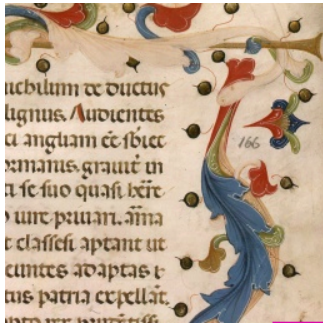 nichilum de ductus
lignus. Audientes
ci angliam eē sbiec
ormanis. grauit in
ti se suo quasi here
uire priuari. āīa
t classes aptant ut
cuntes adaptas
tus patria expellāt.
166